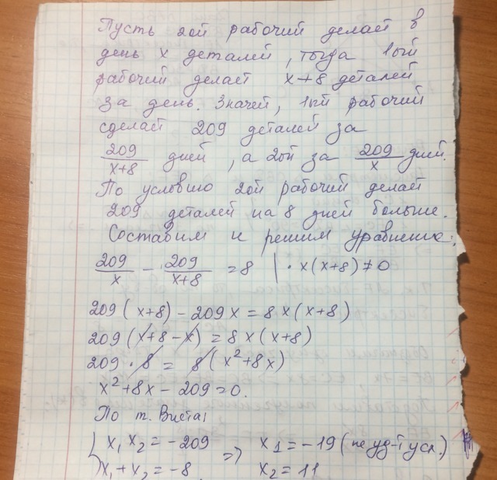 Пусть 2ой рабочий делает в
день x деталей, тогда 1ый
рабочий делает x+8 деталей
за день. Значит, 1ый рабочий
сделает 209 деталей за
209/(x+8) дней, а 2ой за 209/x дней.
По условию 2ой рабочий делает
209 деталей на 8 дней больше.
Составим и решим уравнение:
209/x − 209/(x+8) = 8 | · x(x+8) ≠ 0
209(x+8) − 209x = 8x(x+8)
209(x+8−x) = 8x(x+8)
209 · 8 = 8(x²+8x)
x²+8x−209=0.
По т. Виета:
{x₁x₂ = −209 => x₁ = −19 (не уд-т усл.)
x₁+x₂ = −8, x₂ = 11